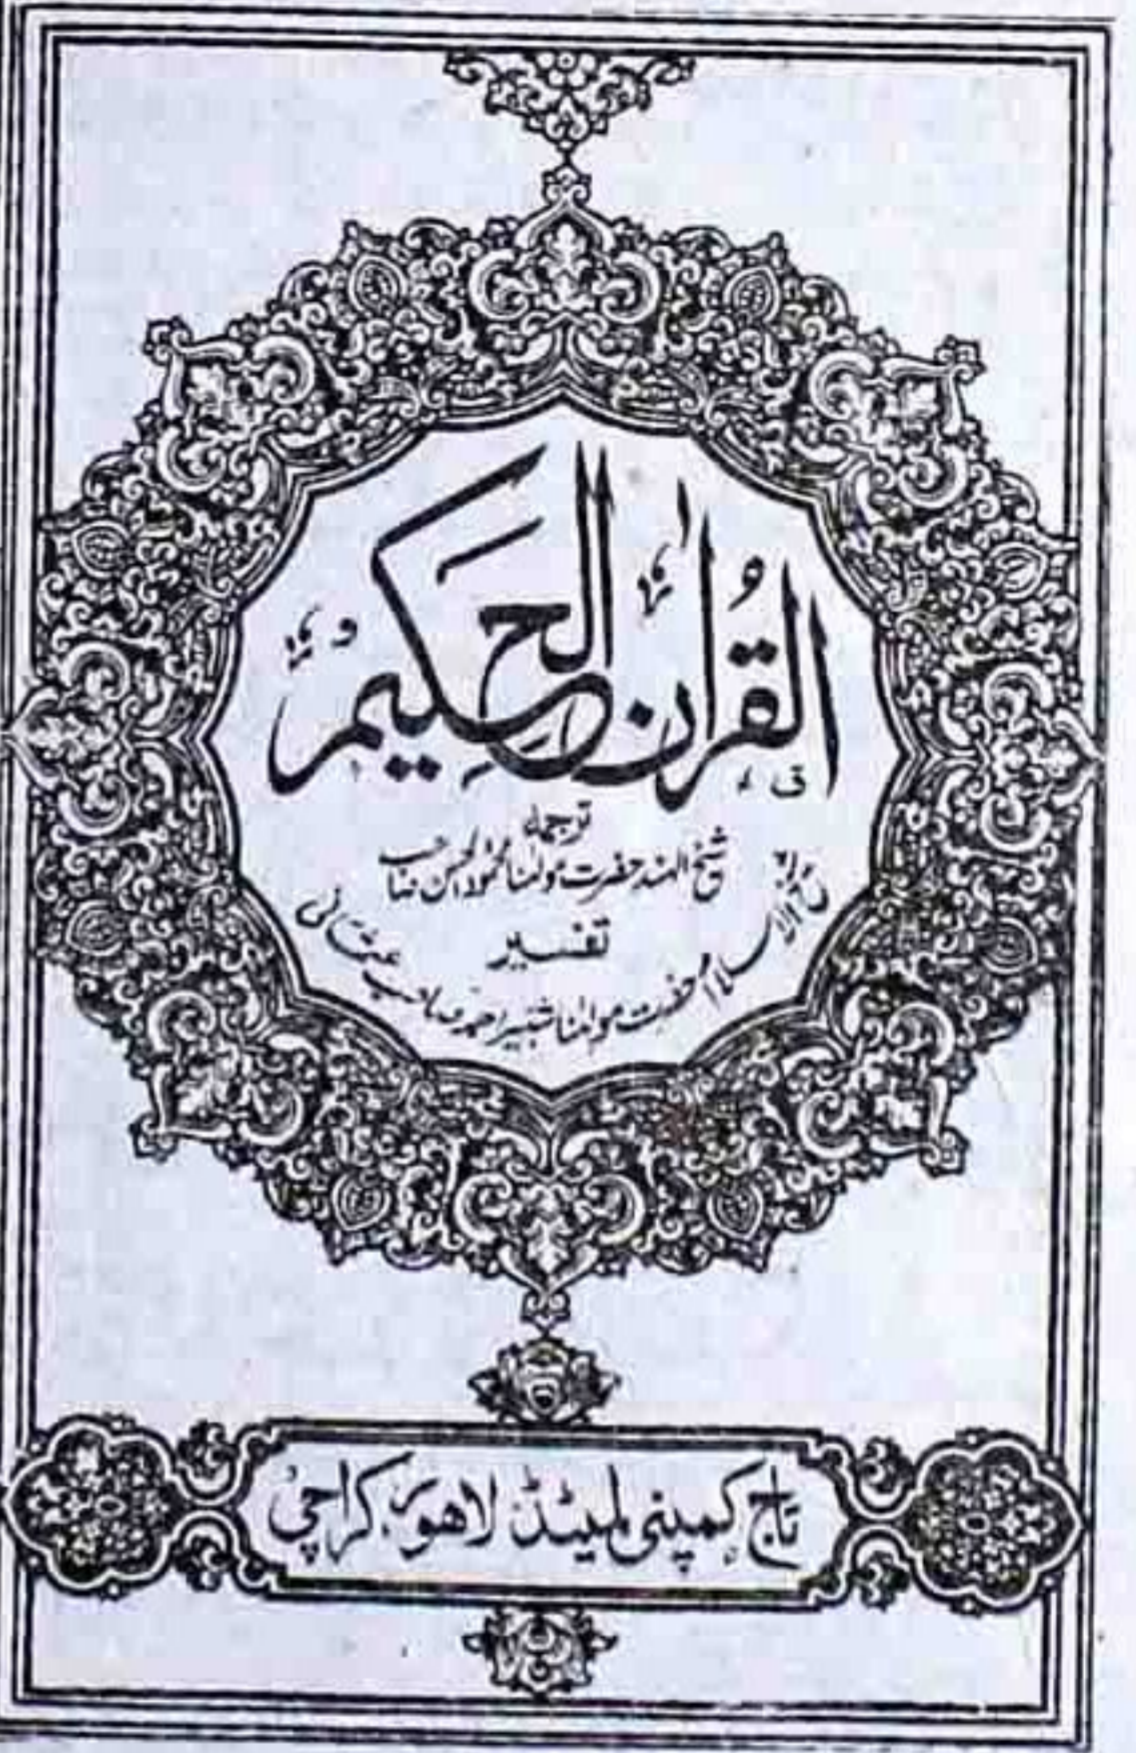 القرآن الحكيم
ترجمه
شیخ الہند حضرت مولٰنا محمود الحسن صاحب
تفسیر
شیخ الاسلام حضرت مولٰنا شبیر احمد صاحب عثمانی
تاج کمپنی لمیٹڈ لاھور، کراچی